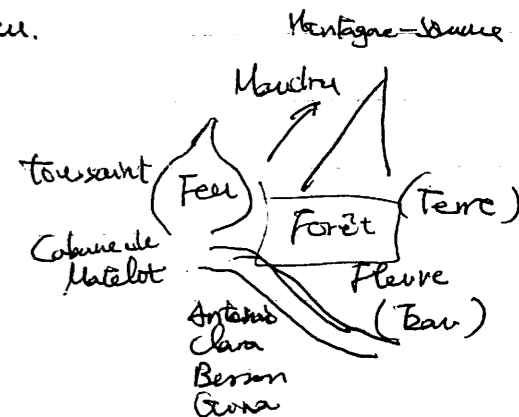 eu.
Montagne-source
Toussaint
Feu
Forêt
(Terre)
Cabane de
Matelot
Fleuve
(Eau)
Antonio
Clara